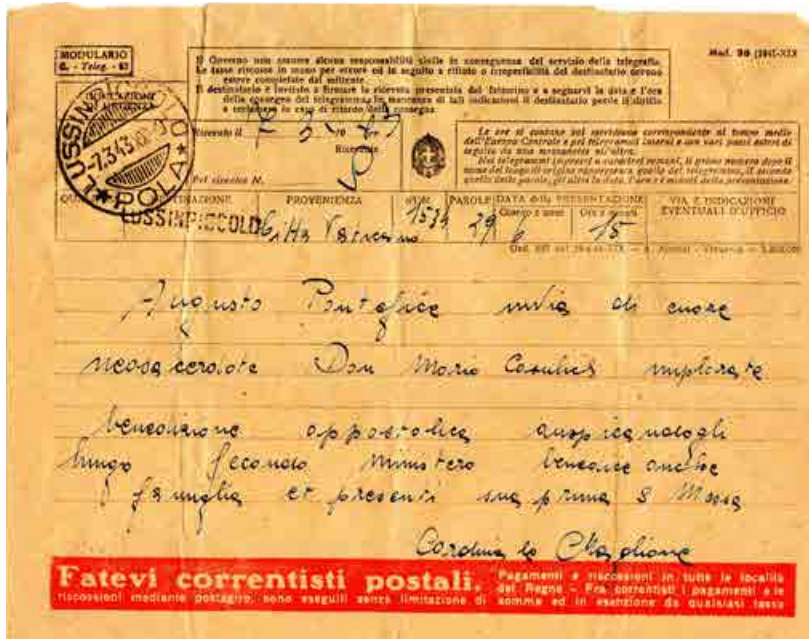 MODULARIO
C. - Teleg. - 63
Mod. 30 (1941-XIX
INDICAZIONE
DI URGENZA
Il Governo non assume alcuna responsabilità civile in conseguenza del servizio della telegrafia.
Le tasse riscosse in meno per errore ed in seguito a rifiuto o irreperibilità del destinatario devono
essere completate dal mittente.
Il destinatario è invitato a firmare la ricevuta presentata dal fattorino e a segnarvi la data e l'ora
della consegna del telegramma. In mancanza di tali indicazioni il destinatario perde il diritto
a reclamare in caso di ritardo della consegna.
LUSSINPICCOLO
-7.3.43
POLA
Ricevuto il
Ricevente
Pel circuito N.
Le ore si contano sul meridiano corrispondente al tempo medio
dell'Europa Centrale
Nei telegrammi impressi a caratteri romani, il primo numero dopo il
nome del luogo di origine rappresenta quello del telegramma, il secondo
quello delle parole, gli altri la data, l'ora e i minuti della presentazione.
DESTINAZIONE PROVENIENZA NUM. PAROLE DATA della PRESENTAZIONE VIA E INDICAZIONI
Giorno e mese Ore e minuti EVENTUALI D'UFFICIO
LUSSINPICCOLO Città Vaticano 29 6 15
Augusto Pontefice invia di cuore
neosacerdote Don Mario implorata
benedizione appostolica auspicandogli
lungo fecondo ministero benedice anche
famiglia et presenti sua prima S Messa
Cardinale Maglione
Fatevi correntisti postali. Pagamenti e riscossioni in tutte le località
del Regno - Fra correntisti i pagamenti e le
riscossioni mediante postagiro, sono eseguiti senza limitazione di somma ed in esenzione da qualsiasi tassa